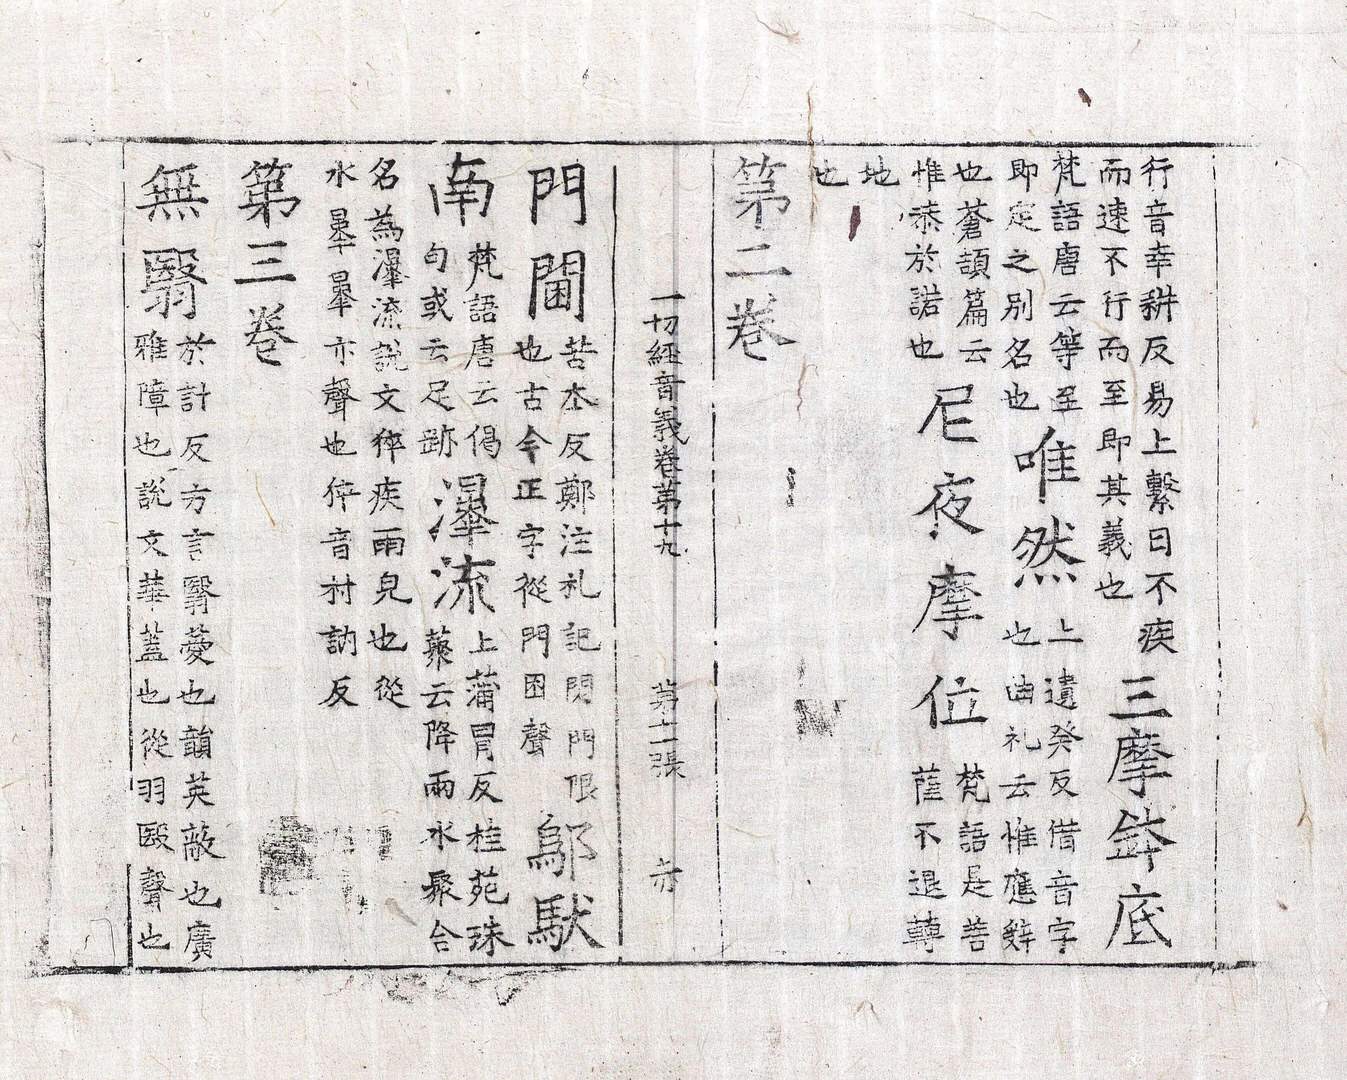 行音幸耕反易上繫曰不疾
而速不行而至即其義也
三摩鉢底
梵語唐云等至
即定之別名也
唯然
上遺癸反借音字
也曲礼云惟應辤
也蒼頡篇云
惟恭於諾也
尼夜摩位
梵語是菩
薩不退轉
地
也
第二卷
一切經音義卷第十九 第十一張 亦
門閫
苦本反鄭注礼記閫門限
也古今正字從門困聲
鄔馱
南
梵語唐云偈
句或云足跡
瀑流
上蒲冒反桂苑珠
藂云降雨水聚合
名為瀑流說文猝疾雨皃也從
水㬥㬥亦聲也猝音村訥反
第三卷
無翳
於計反方言翳薆也韻英蔽也廣
雅障也說文華蓋也從羽殹聲也